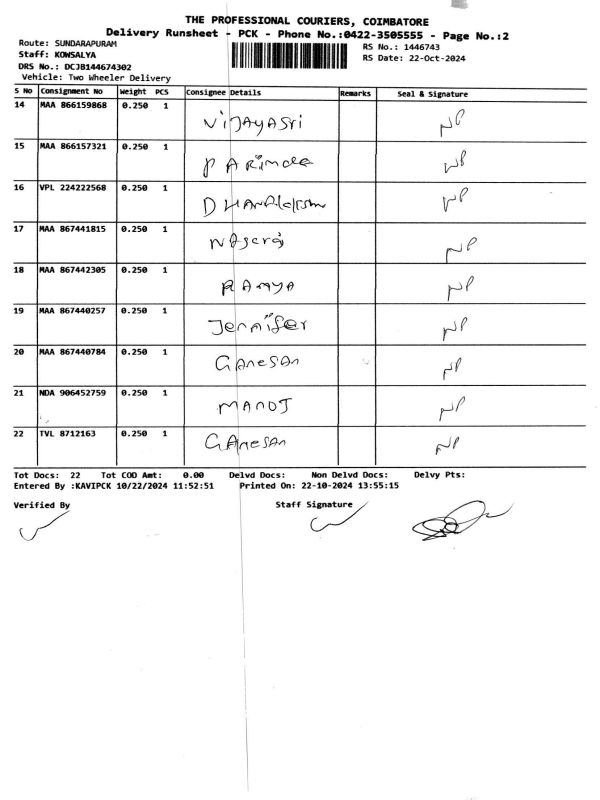 THE PROFESSIONAL COURIERS, COIMBATORE
Delivery Runsheet - PCK - Phone No.:0422-3505555 - Page No.:2
Route: SUNDARAPURAM
RS No.: 1446743
Staff: KOWSALYA
RS Date: 22-Oct-2024
DRS No.: DCJB144674302
Vehicle: Two Wheeler Delivery
S No Consignment No Weight PCS Consignee Details Remarks Seal & Signature
14 MAA 866159868 0.250 1 VIJAYASri NP
15 MAA 866157321 0.250 1 NP
16 VPL 224222568 0.250 1 NP
17 MAA 867441815 0.250 1 NP
18 MAA 867442305 0.250 1 RAMYA NP
19 MAA 867440257 0.250 1 Jennifer NP
20 MAA 867440784 0.250 1 GANeSAN NP
21 NDA 906452759 0.250 1 MANOJ NP
22 TVL 8712163 0.250 1 GANeSAN NP
Tot Docs: 22 Tot COD Amt: 0.00 Delvd Docs: Non Delvd Docs: Delvy Pts:
Entered By :KAVIPCK 10/22/2024 11:52:51 Printed On: 22-10-2024 13:55:15
Verified By Staff Signature